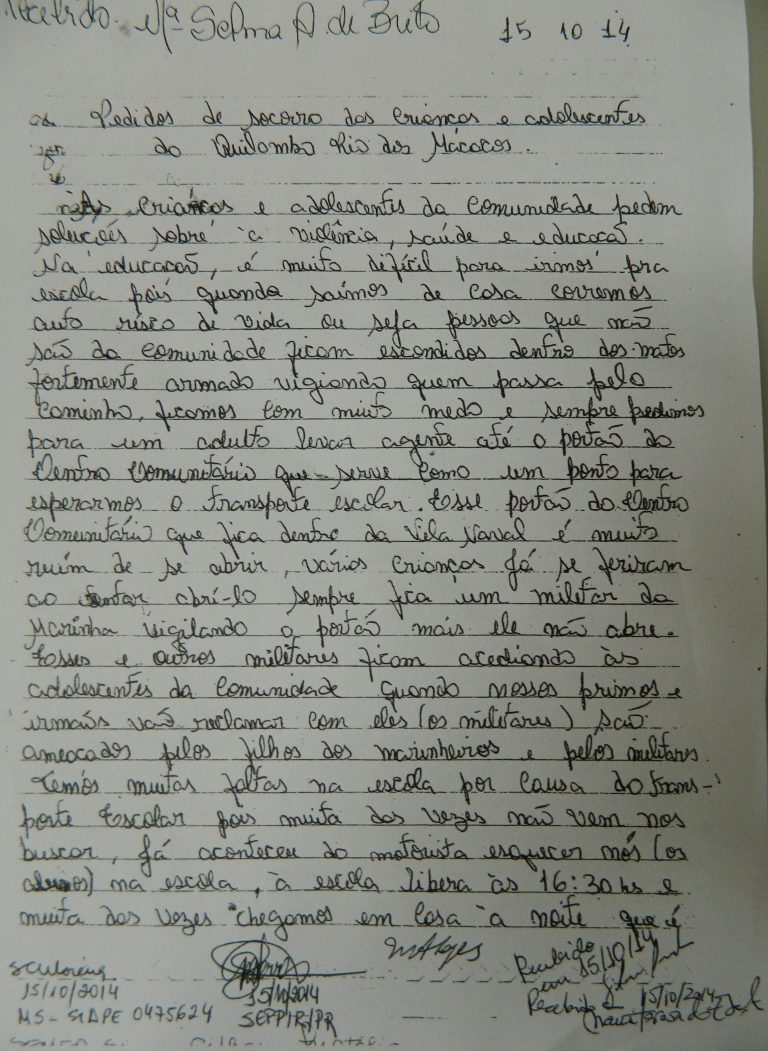 Recebido. Mª Selma A de Brito 15 10 14
Pedidos de socorro das crianças e adolescentes
do Quilombo Rio dos Macacos.
As crianças e adolescentes da comunidade pedem
soluções sobre a violência, saúde e educacaõ.
Na educacaõ, é muito difícil para irmos pra
escola pois quando saímos de casa corremos
auto risco de vida ou seja pessoas que naõ
saõ da comunidade ficam escondidos dentro dos matos
fortemente armado vigiando quem passa pelo
caminho, ficamos com muito medo e sempre pedimos
para um adulto levar agente até o portaõ do
Centro Comunitário que serve como um ponto para
esperarmos o transporte escolar. Esse portaõ do Centro
Comunitário que fica dentro da Vila Naval é muito
ruím de se abrir, várias crianças já se feriram
ao tentar abrí-lo sempre fica um militar da
Marinha vigilando o portaõ mais ele naõ abre.
Esses e outros militares ficam acediando às
adolescentes da comunidade quando nossos primos e
irmaõs vaõ reclamar com eles (os militares) saõ
ameacados pelos filhos dos marinheiros e pelos militares.
Temos muitas faltas na escola por causa do trans-
porte Escolar pois muita das vezes naõ vem nos
buscar, já aconteceu do motorista esquecer nós (os
alunos) na escola, à escola libera às 16:30 hs e
muita das vezes chegamos em casa a noite que é
15/10/2014
MS - SIAPE 0475624
15/10/2014
SEPPIR/PR
Recebido
em 15/10/14
Recebido 15/10/2014